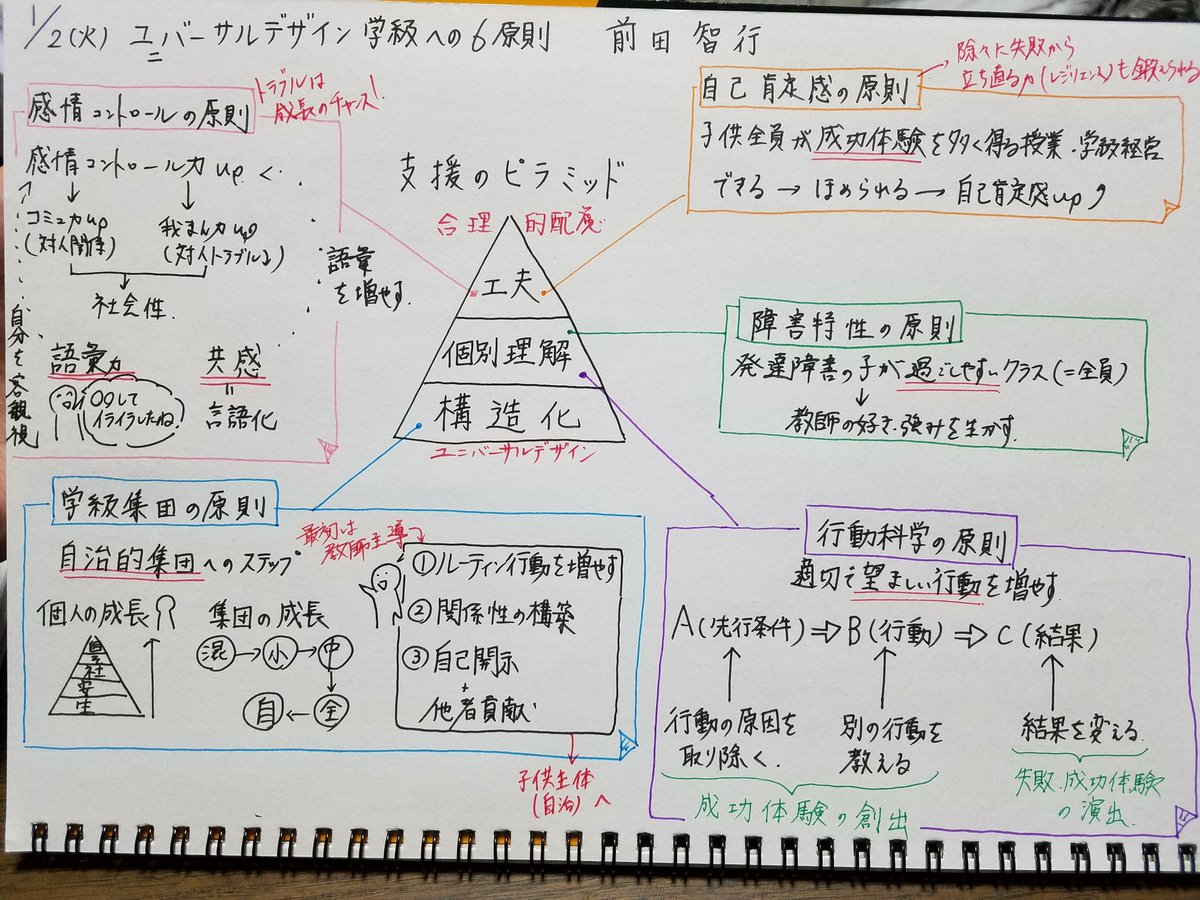 1/2(火) ユニバーサルデザイン学級への6原則 前田智行
感情コントロールの原則
トラブルは
成長のチャンス!
感情コントロール力up
コミュ力up
(対人関係)
我まん力up
(対人トラブル↓)
社会性
語彙力
○○して
イライラしたね!
共感
=
言語化
自分を客観視
語彙
を増やす
支援のピラミッド
合理的配慮
工夫
個別理解
構造化
ユニバーサルデザイン
自己肯定感の原則
→ 除々に失敗から
立ち直る力(レジリエンス)も鍛えられる
子供全員が成功体験を多く得る授業・学級経営
できる → ほめられる → 自己肯定感up
障害特性の原則
発達障害の子が過ごしやすいクラス(=全員)
↓
教師の好き、強みを生かす
学級集団の原則
自治的集団へのステップ
個人の成長
社
安
生
集団の成長
混→小→中
↓
自←全
最初は
教師主導
①ルーティン行動を増やす
②関係性の構築
③自己開示
+
他者貢献
子供主体
(自治)へ
行動科学の原則
適切で望ましい行動を増やす
A(先行条件)⇒B(行動)⇒C(結果)
行動の原因を
取り除く
別の行動を
教える
結果を変える
成功体験の創出
失敗、成功体験
の演出